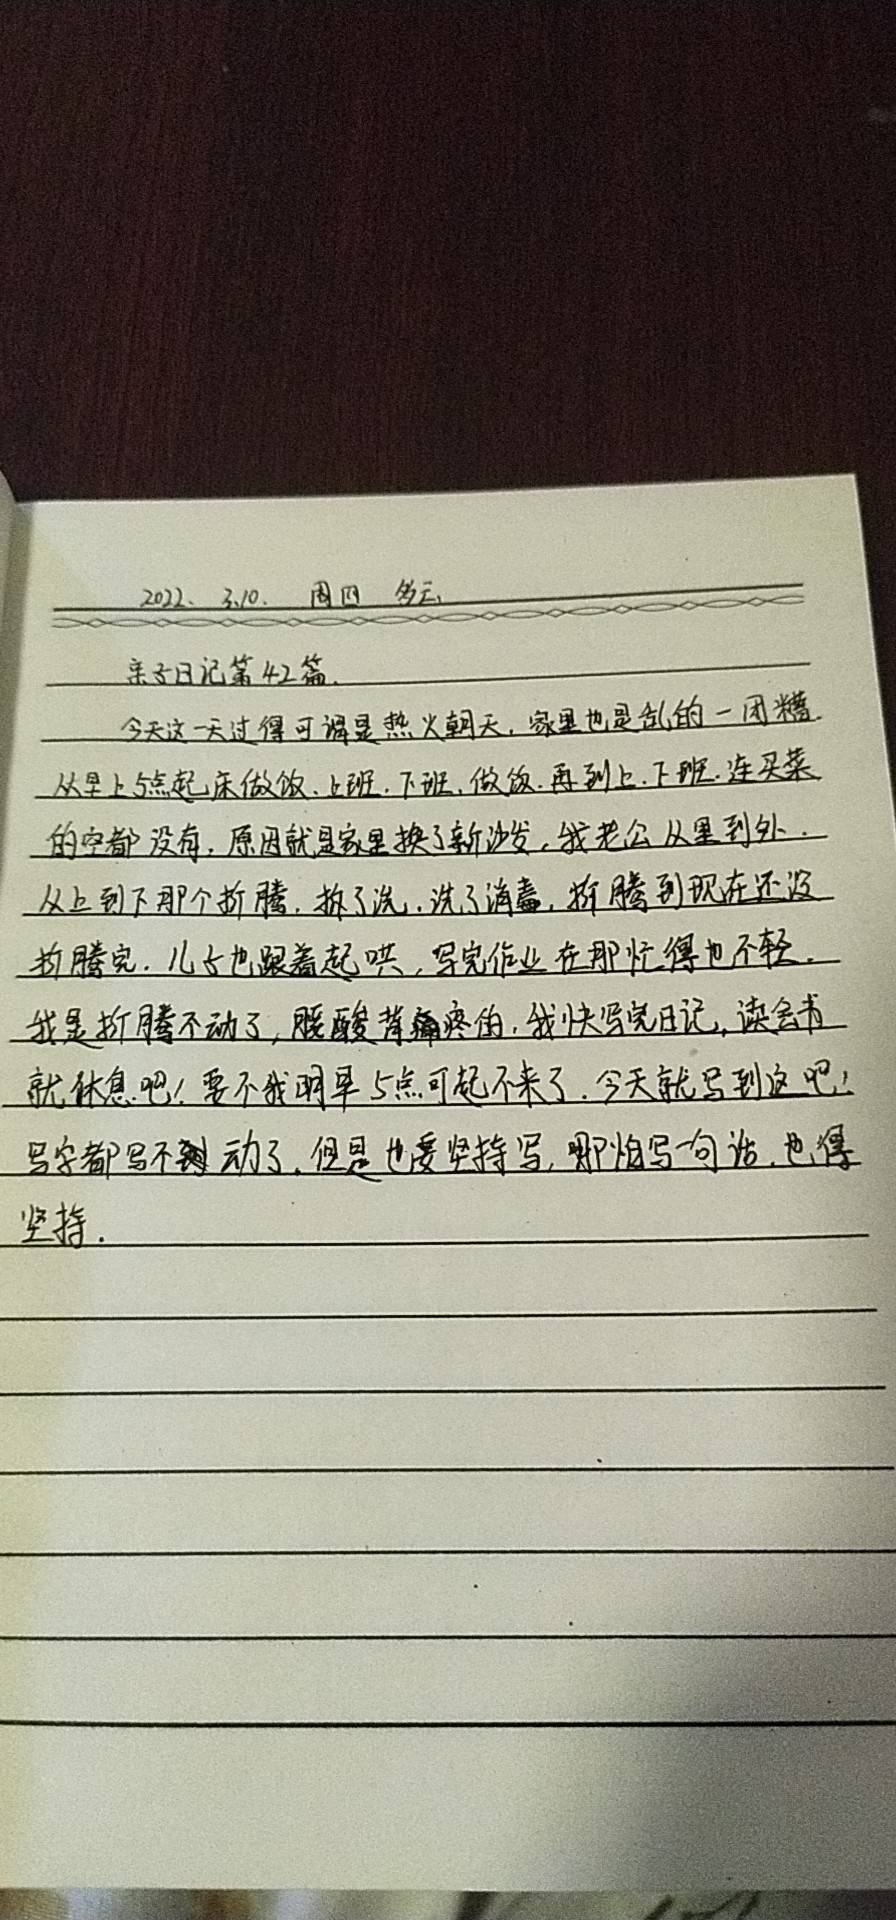 2022. 3.10. 周四 多云
亲子日记第42篇.
今天这一天过得可谓是热火朝天,家里也是乱的一团糟.
从早上5点起床做饭.上班.下班.做饭.再到上.下班.连买菜
的空都没有,原因就是家里换了新沙发,我老公从里到外.
从上到下那个折腾.拆了洗.洗了消毒,折腾到现在还没
折腾完.儿子也跟着起哄,写完作业在那忙得也不轻.
我是折腾不动了,腰酸背痛疼的,我快写完日记,读会书
就休息吧!要不我明早5点可起不来了.今天就写到这吧!
写字都写不动了.但是也要坚持写,哪怕写一句话.也得
坚持.